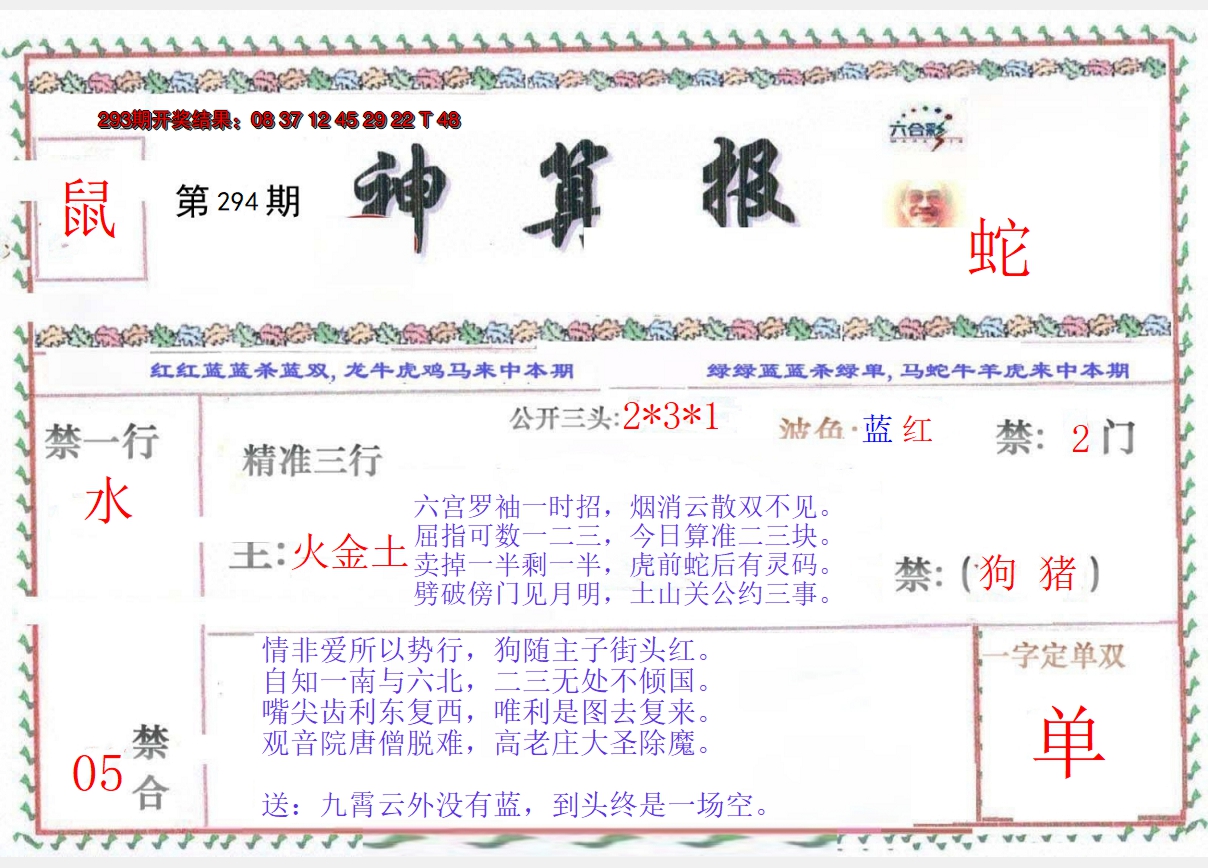 293期开奖结果：08 37 12 45 29 22 T 48
六合彩
鼠
第 294 期
神算报
蛇
红红蓝蓝杀蓝双, 龙牛虎鸡马来中本期
绿绿蓝蓝杀绿单, 马蛇牛羊虎来中本期
公开三头:2*3*1
波色: 蓝 红
禁: 2 门
禁一行
水
精准三行
主:火金土
六宫罗袖一时招，烟消云散双不见。
屈指可数一二三，今日算准二三块。
卖掉一半剩一半，虎前蛇后有灵码。
劈破傍门见月明，土山关公约三事。
禁:（狗 猪）
情非爱所以势行，狗随主子街头红。
自知一南与六北，二三无处不倾国。
嘴尖齿利东复西，唯利是图去复来。
观音院唐僧脱难，高老庄大圣除魔。
送：九霄云外没有蓝，到头终是一场空。
05
禁合
一字定单双
单